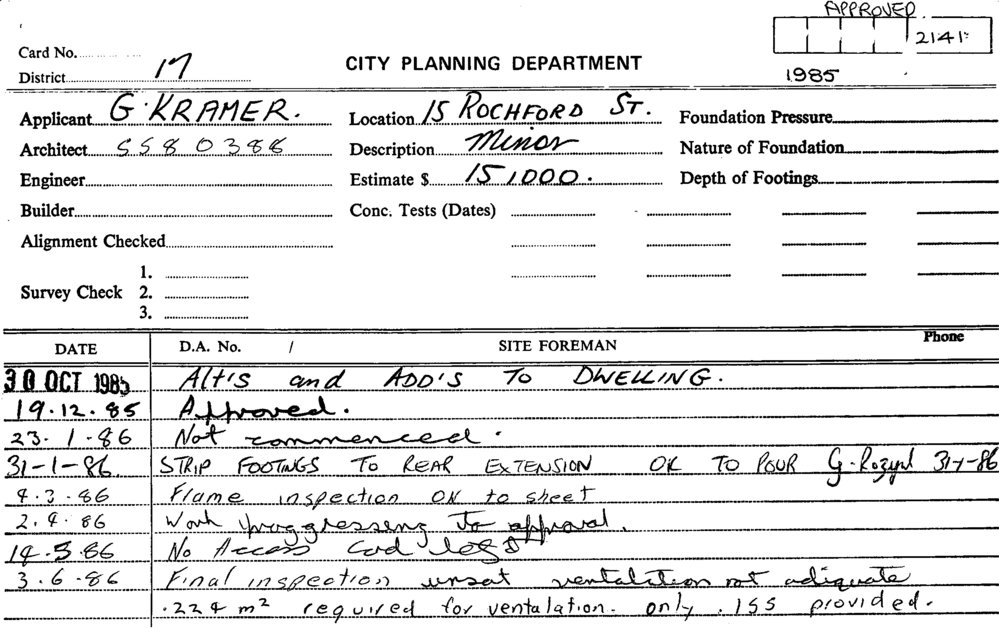 APPROVED
2141
Card No.
District 17
CITY PLANNING DEPARTMENT
1985
Applicant G. KRAMER.
Location 15 ROCHFORD ST.
Foundation Pressure
Architect 5580386
Description Minor
Nature of Foundation
Engineer
Estimate $ 15,000.
Depth of Footings
Builder
Conc. Tests (Dates)
Alignment Checked
Survey Check 1.
2.
3.
DATE D.A. No. / SITE FOREMAN Phone
30 OCT 1985 Alt's and ADD'S TO DWELLING.
19.12.85 Approved.
23.1.86 Not commenced.
31-1-86. STRIP FOOTINGS TO REAR EXTENSION OK TO POUR G. 31-1-86
4.3.86 Frame inspection OK to sheet
2.4.86 Work proggressing to approval.
14.5.86 No Access Card left
3.6.86 Final inspection unsat ventalation not adiquate
.224 m² required for ventalation. only .155 provided.